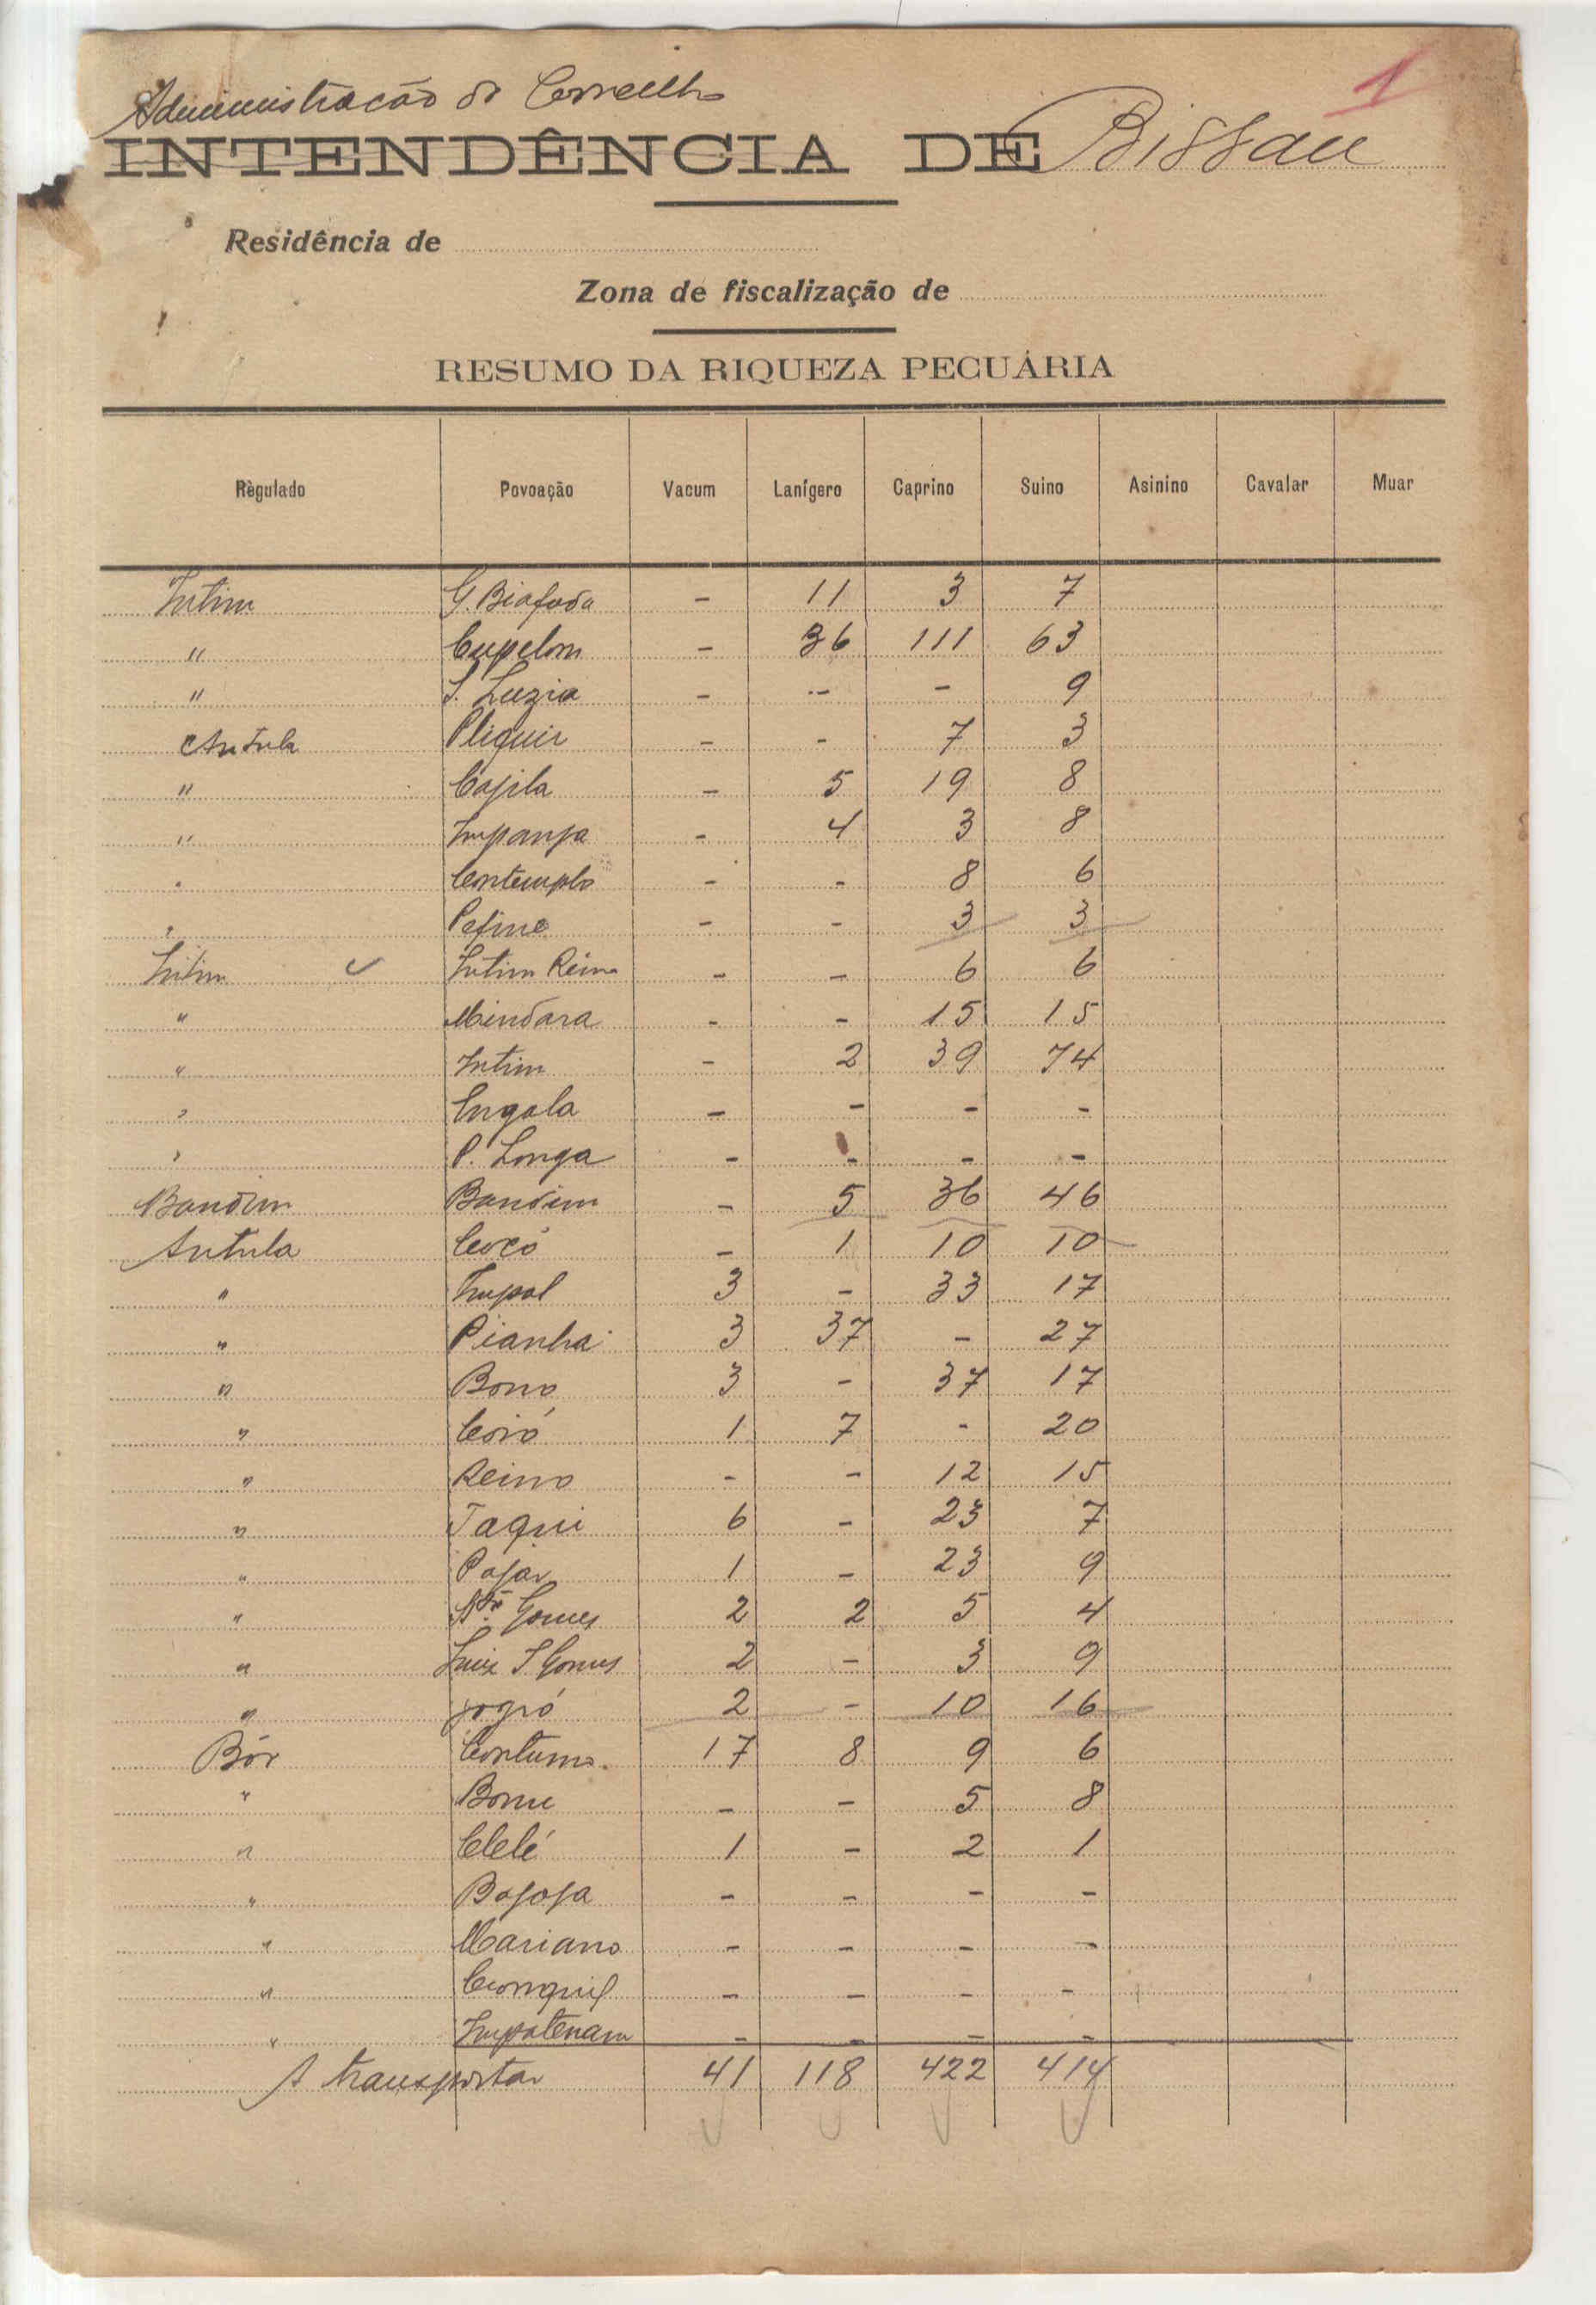 1
Administração do Concelho
INTENDÊNCIA DE Bissau
Residência de
Zona de fiscalização de
RESUMO DA RIQUEZA PECUÁRIA
Règulado Povoação Vacum Lanígero Caprino Suino Asinino Cavalar Muar
Intim G. Biafada - 11 3 7
" Cupelom - 36 111 63
" S. Luzia - - - 9
Antula Pliquir - - 7 3
" Cajila - 5 19 8
" Impanja - 4 3 8
" Contemplo - - 8 6
" Pefine - - 3 3
Intim Intim Reino - - 6 6
" Mindara - - 15 15
" Intim - 2 39 74
" Ingala - - - -
" P. Longa - - - -
Bandim Bandim - 5 36 46
Antula Cocó - 1 10 10
" Impal 3 - 33 17
" Pianha 3 37 - 27
" Bono 3 - 37 17
" Coió 1 7 - 20
" Reino - - 12 15
" Jaqui 6 - 23 7
" Pajar 1 - 23 9
" Gomes 2 2 5 4
" Luiz S Gomes 2 - 3 9
" Jogró 2 - 10 16
Bôr Contumo 17 8 9 6
" Borne - - 5 8
" Clelé 1 - 2 1
" Bajoja - - - -
" Mariano - - - -
" - - - -
" Impatenam - - - -
A transportar 41 118 422 414